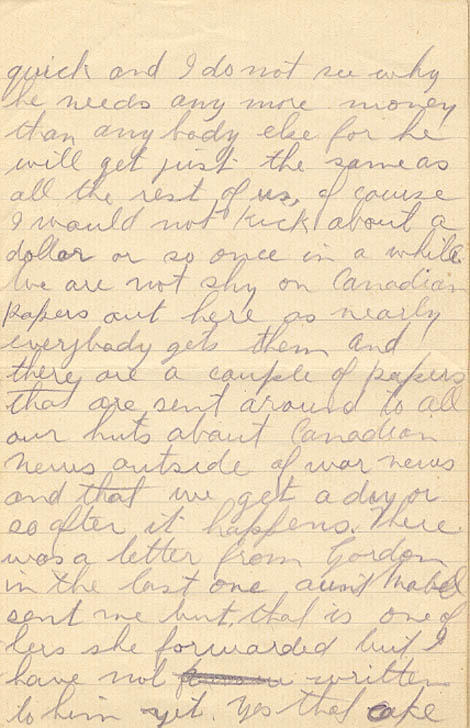 quick and I do not see why
he needs any more money
than any body else for he
will get just the same as
all the rest of us, of course
I would not kick about a
dollar or so once in a while
We are not shy on Canadian
papers out here as nearly
everybody gets them and
there are a couple of papers
that are sent around to all
our huts about Canadian
news outside of war news
and that we get a day or
so after it happens. There
was a letter from Gordon
in the last one aunt Mabel
sent me but, that is one of
hers she forwarded but I
have not written
to him yet. Yes that cake